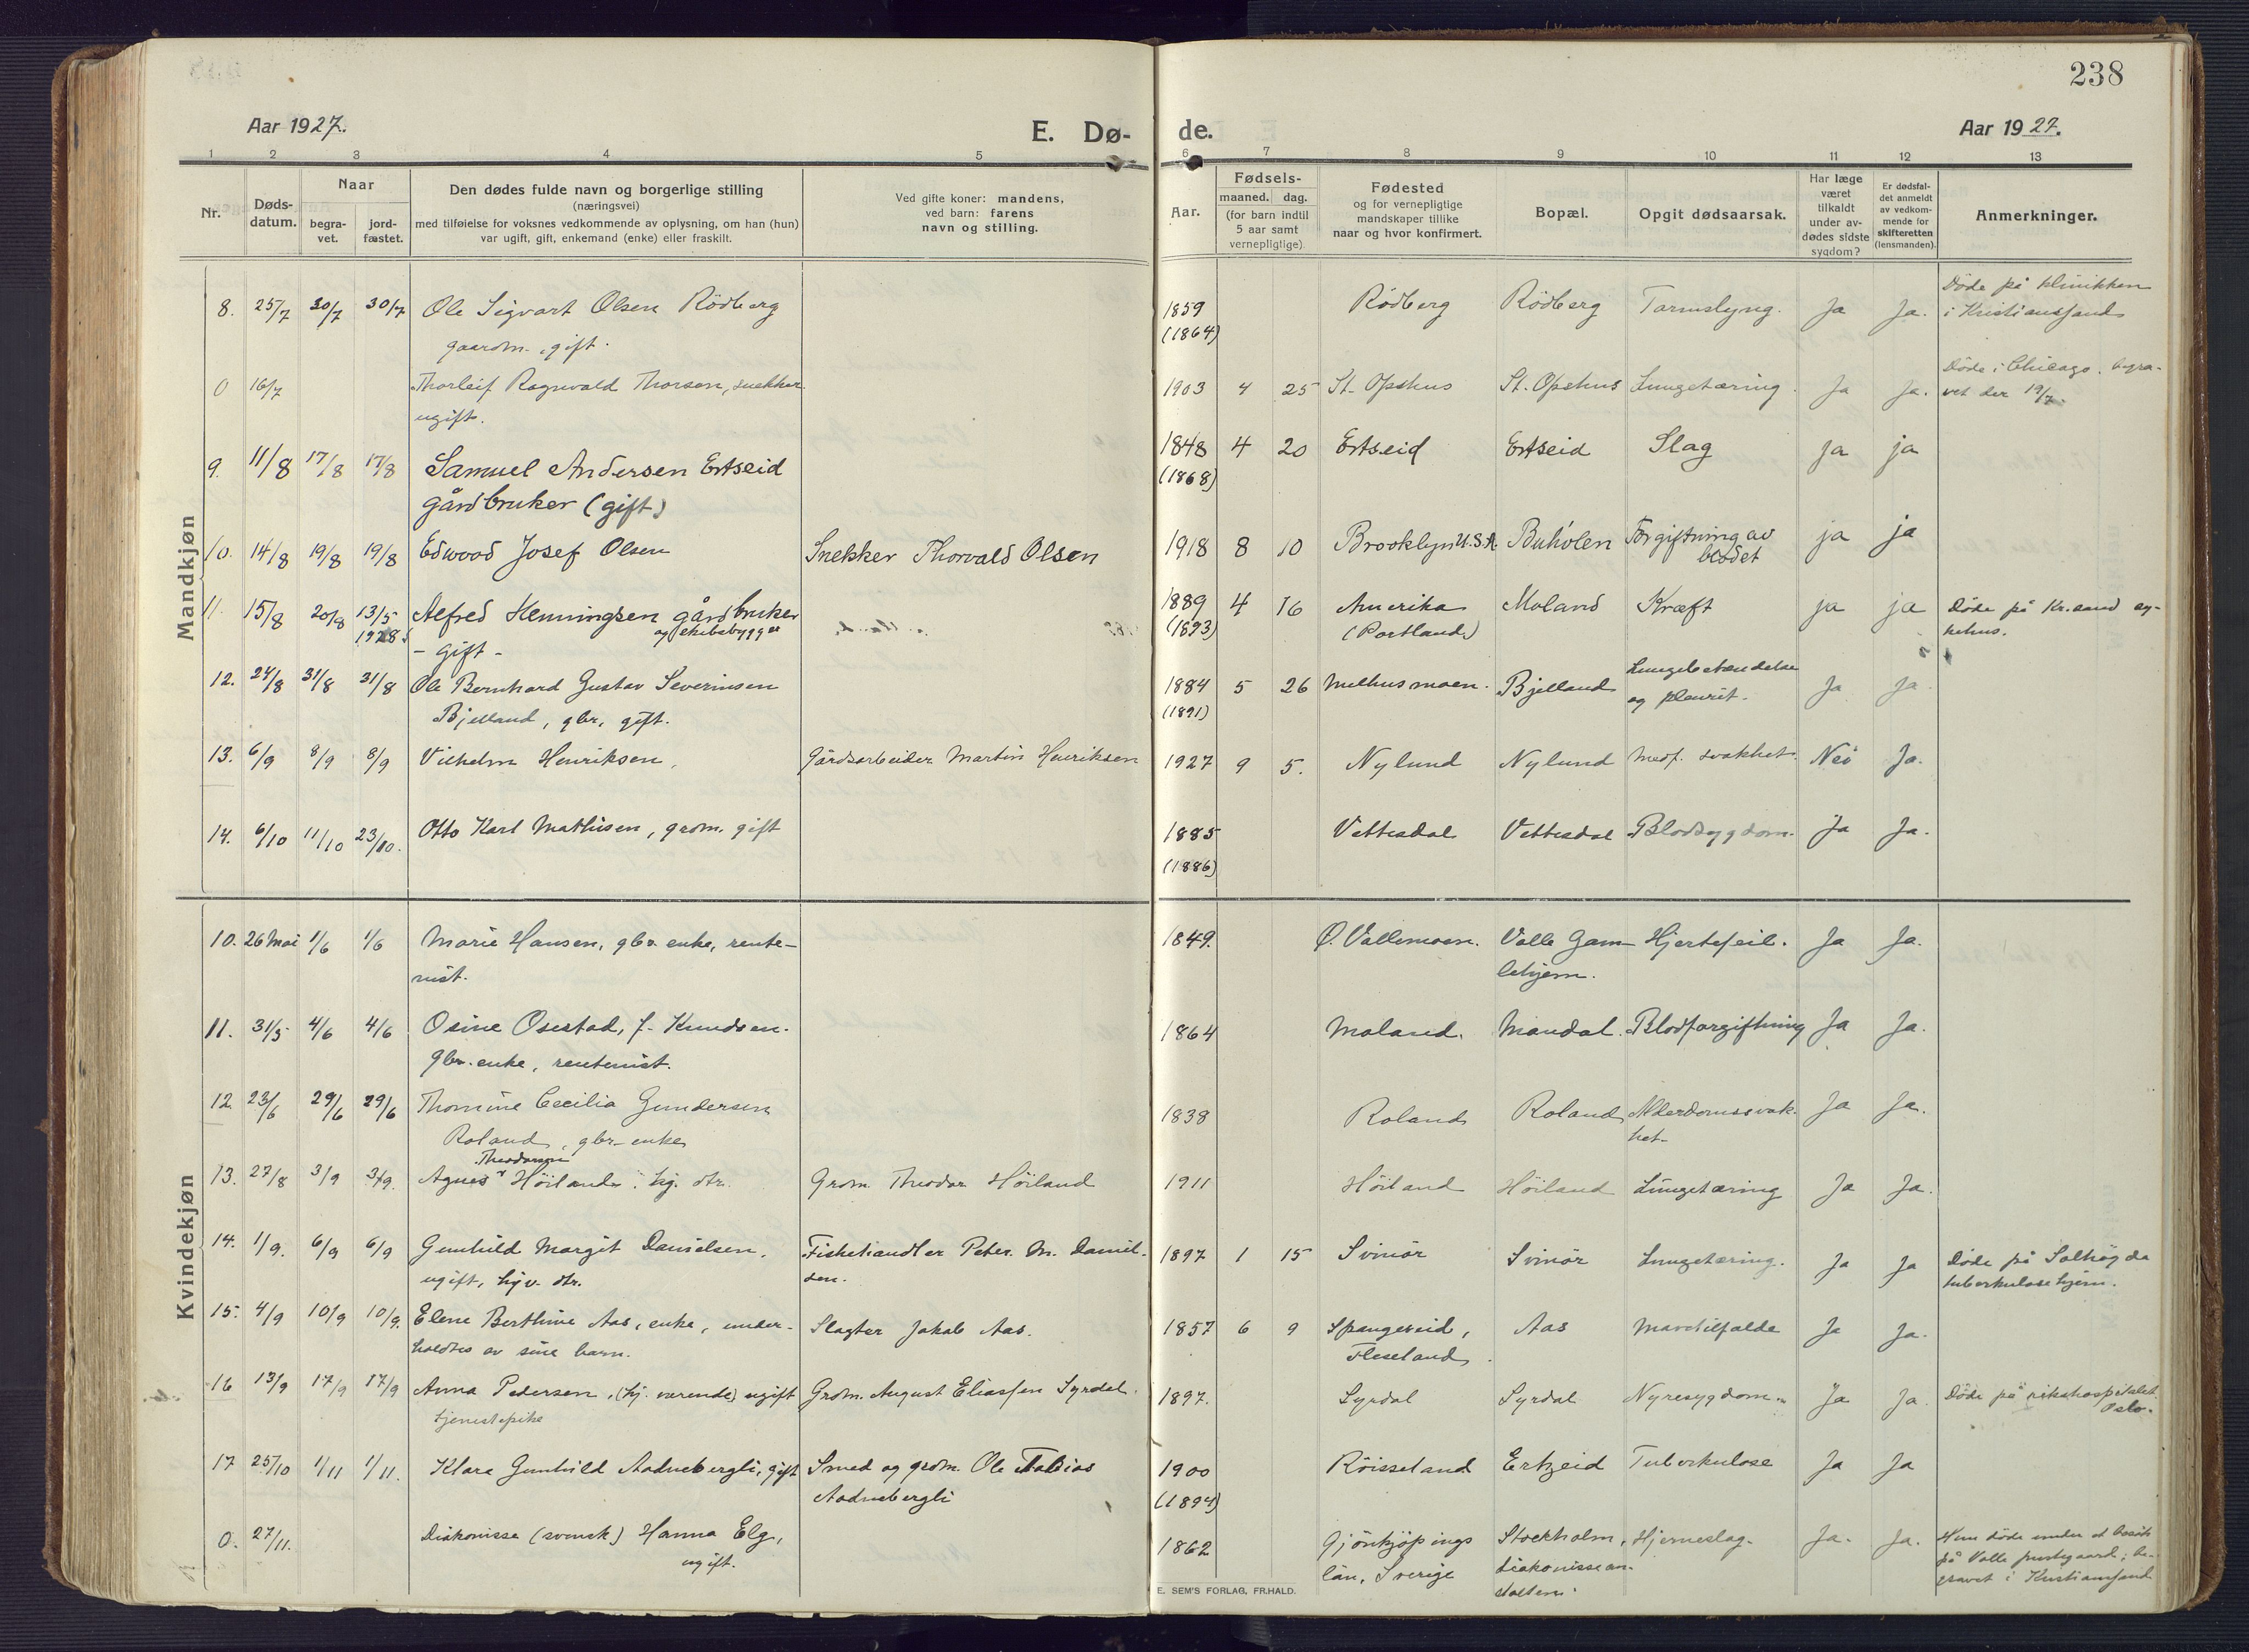 238
Aar 1927.
E. Dø-
de.
Aar 1927.
1 2 3 4 5 6 7 8 9 10 11 12 13
Nr.
Døds-
datum.
Naar
begra-
vet.
jord-
fæstet.
Den dødes fulde navn og borgerlige stilling
(næringsvei)
med tilføielse for voksnes vedkommende av oplysning, om han (hun)
var ugift, gift, enkemand (enke) eller fraskilt.
Ved gifte koner: mandens,
ved barn: farens
navn og stilling.
Aar.
Fødsels-
maaned. dag.
(for barn indtil
5 aar samt
vernepligtige).
Fødested
og for vernepligtige
mandskaper tillike
naar og hvor konfirmert.
Bopæl.
Opgit dødsaarsak.
Har læge
været
tilkaldt
under av-
dødes sidste
sygdom?
Er dødsfal-
det anmeldt
av vedkom-
mende for
skifteretten
(lensmanden).
Anmerkninger.
Mandkjøn
8. 25/7 30/7 30/7 Ole Sigvart Olsen Rödberg 1859 Rödberg Rödberg Tarmslyng. Ja Ja. Döde på klinikken
gaardm., gift. (1864) i Kristianssand
0 16/7 Thorleif Ragnvald Thorsen, snekker 1903 4 25 St. Opshus St. Opshus Lungetæring. Ja Ja. Döde i Chicago, begra-
ugift. vet der 19/7.
9. 11/8 17/8 17/8 Samuel Andersen Ertseid 1848 4 20 Ertseid Ertseid Slag ja ja
gårdbruker (gift) (1868)
10. 14/8 19/8 19/8 Edwood Josef Olsen Snekker Thorvald Olsen 1918 8 10 Brooklyn U.S.A. Buholen Forgiftning av ja ja
blodet
11. 15/8 20/8 13/5 Alfred Henningsen gårdbruker 1889 4 16 Amerika Moland Kræft ja ja Döde på Kr.sand sy-
1928. og skibsbygger (1893) (Portland) kehus.
- gift -
12. 24/8 31/8 31/8 Ole Bernhard Gustav Severinsen 1884 5 26 Melhusmoen. Bjelland Lungebetændelse Ja Ja
Bjelland, gbr, gift. (1891) og pleurit.
13. 6/9 8/9 8/9 Vilhelm Henriksen, Gårdsarbeider Martin Henriksen 1927 9 5. Nylund Nylund Medf. svakhet. Nei Ja.
14. 6/10 11/10 23/10. Otto Karl Mathisen, grdm. gift 1885 Vettesdal Vettesdal Blodsygdom. Ja Ja.
(1886)
Kvindekjøn
10. 26 Mai 1/6 1/6 Marie Hansen, gbr. enke, rente- 1849. Ø. Vallemoen. Valle Gam- Hjertefeil. Ja Ja.
nist. lehjem.
11. 31/5 4/6 4/6 Osine Osestad, f. Knudsen. 1864 Moland. Mandal. Blodforgiftning Ja Ja.
Gbr. enke, rentenist.
12. 23/6 29/6 29/6 Thomine Cecilia Gundersen 1838 Roland Roland Alderdomssvak- Ja Ja.
Roland, gbr. enke het.
Theodorsen
13. 27/8 3/9 3/9. Agnes Höiland. hj. dtr. Grdm. Theodor Höiland 1911 Höiland Höiland Lungetæring Ja Ja.
14. 1/9. 6/9 6/9 Gunhild Margit Danielsen. Fiskehandler Peter M. Daniel- 1897 1 15 Svinör Svinör Lungetæring. Ja Ja Döde på Solhögda
ugift, hjv. dtr. sen. tuberkulosehjem.
15. 4/9 10/9 10/9. Elene Berthine Aas, enke, under- Slagter Jakob Aas. 1857 6 9 Spangereid, Aas Mavetilfælde Ja Ja.
holdtes av sine barn. Fleseland.
16 13/9 17/9 17/9 Anna Pedersen, (hj. værende) ugift Grdm. August Eliassen Syrdal. 1897. Syrdal Syrdal Nyresygdom. Ja Ja. Döde på rikshospitalet
tjenestepike Oslo.
17 25/10 1/11 1/11. Klara Gunhild Aadnebergli, gift Smed og grdm. Ole Tobias 1900 Röisseland Ertzeid Tuberkulose Ja Ja
Aadnebergli (1894)
0. 27/11. Diakonisse (svensk) Hanna Elg, 1862 Gjönkjöpings Stockholm, Hjerneslag. Ja. Ja. Hun döde under et besök
ugift. län, Sverige diakonissean- på Valle prestegaard; be-
stalten. gravet i Kristianssand
E. SEM'S FORLAG, FR.HALD.